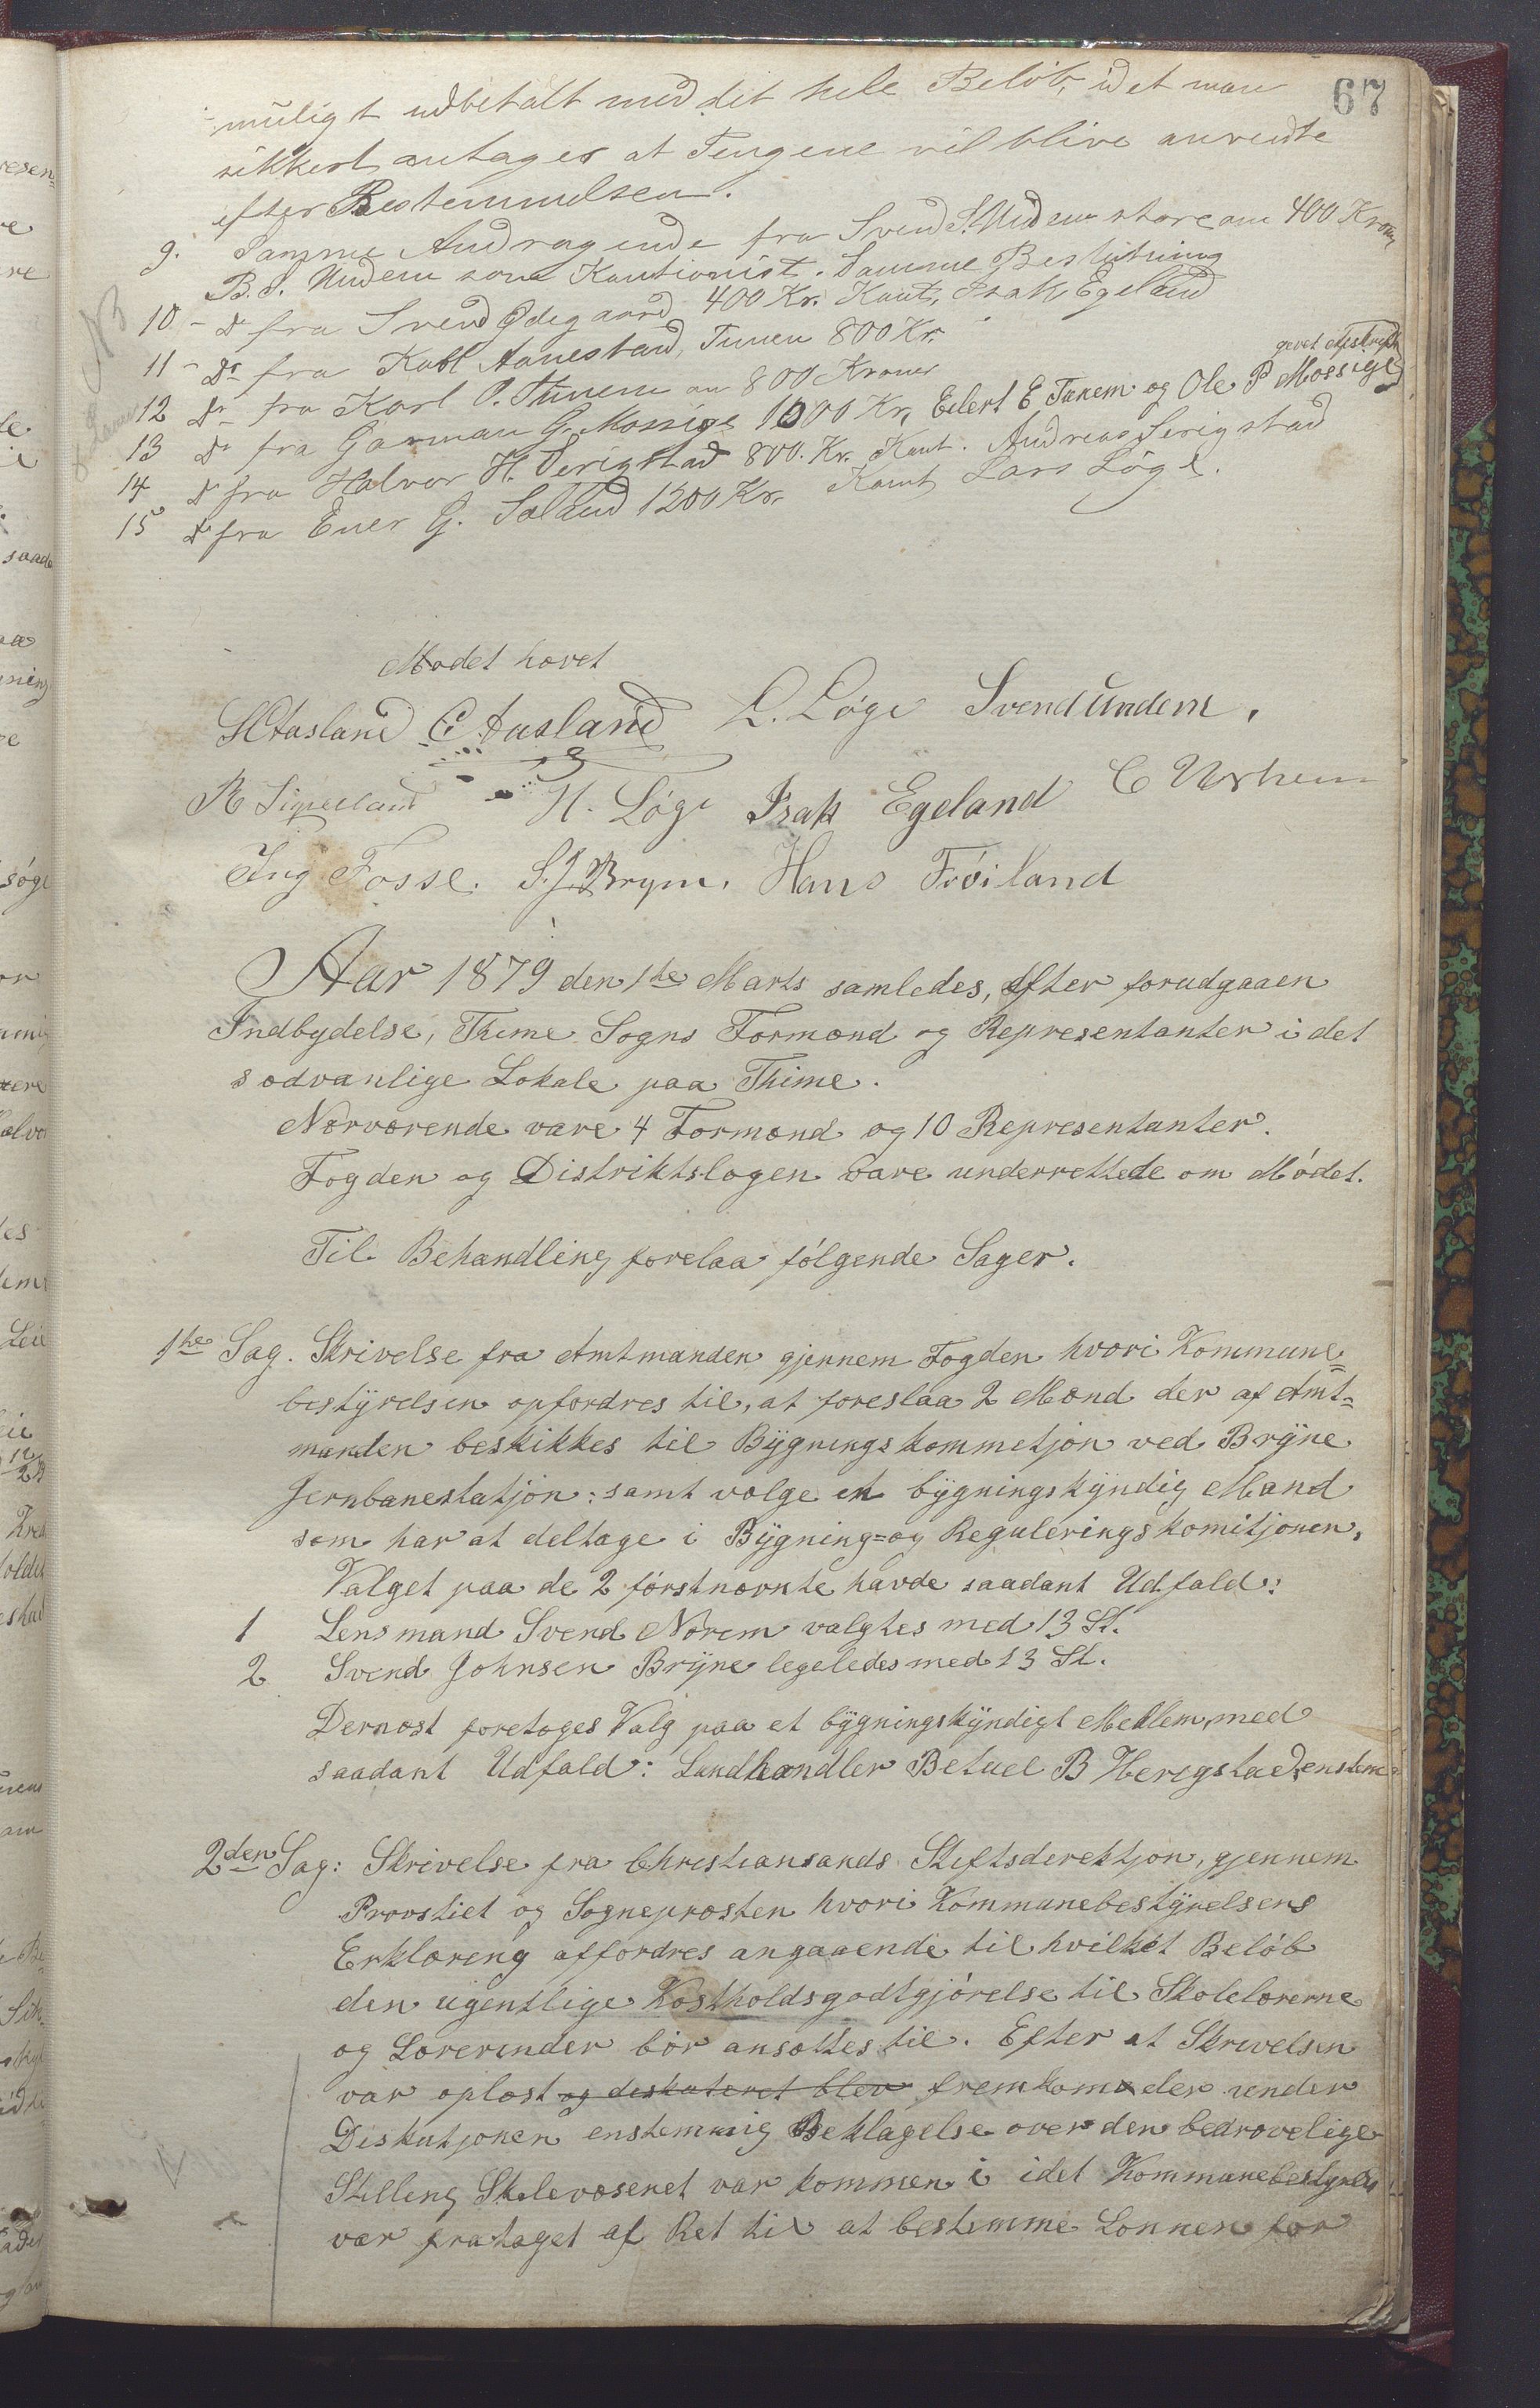 67
muligt udbetalt med det hele Beløb, idet man
sikkert antages at Pengene vil blive anvendte
efter Bestemmelsen.
9. Samme Andragende fra Svend S. Undem store om 400 Kroner
B. S. Undem som Kautionist. Samme Beslutning
10 - Do fra Svend Ødegaard 400 Kr. Kaut, Isak Egeland
11 - Do fra Kabl Aanestad, Tunem 800 Kr.
12 Do fra Karl P. Tunem om 800 Kroner
13 Do fra Garman G. Mossige 1000 Kr, Eilert E Tunem og Ole P Mossige
14 Do fra Halvor H. Serigstad 800. Kr. Kaut. Andreas Serigstad
15 Do fra Ener G. Saland 1200 Kr. Kaut Lars Løge.
NB
Mødet hævet
H Aasland E Aasland L. Løge Svend Undem.
R Sigveland H. Løge Isak Egeland C Urhem
Ing Fosse. S. J. Bryne. Hans Frøiland
Aar 1879 den 1te Marts samledes, efter forudgaaen
Indbydelse, Thime Sogns Formænd og Representanter i det
sædvanlige Lokale paa Thime.
Nærværende vare 4 Formænd og 10 Representanter.
Fogden og Distriktslægen vare underrettede om Mødet.
Til Behandling forelaa følgende Sager.
1te Sag. Skrivelse fra Amtmanden gjennem Fogden hvori Kommune=
bestyrelsen opfordres til, at foreslaa 2 Mænd der af Amt=
manden beskikkes til Bygningskommetjon ved Bryne
Jernbanestatjon: samt vælge en bygningskyndig Mand
som har at deltage i Bygning= og Reguleringskomitjonen.
Valget paa de 2 førstnævnte havde saadant Udfald:
1 Lensmand Svend Norem valgtes med 13 St.
2 Svend Johnsen Bryne legeledes med 13 St.
Dernæst foretoges Valg paa et bygningskyndigt Medlem, med
saadant Udfald: Landhandler Betuel B Herigstad, enstem
2den Sag: Skrivelse fra Christiansands Stiftsderektjon, gjennem
Provstiet og Sognepræsten hvori Kommunebestyrelsens
Erklæring affordres angaaende til hvilket Beløb
den ugentlige Kostholdsgodtgjørelse til Skolelærerne
og Lærerinder bør ansættes til. Efter at Skrivelsen
var oplæst og deskuteret blev fremkom der under
Diskutjonen enstemmig Beklagelse over den bedrøvelige
Stilling Skolevæsenet var kommen i idet Kommunebestyrels
var frataget af Ret til at bestemme Lønnen for